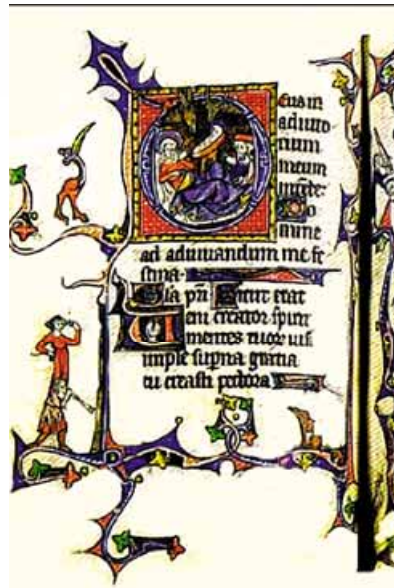 eus in
adiuto
rium
meum
intende
Do
mine
ad adiuuandum me fe
stina
Gla pri Sicut erat
Veni creator spirit
mentes tuor uisi
imple supna gratia
tu creasti pectora